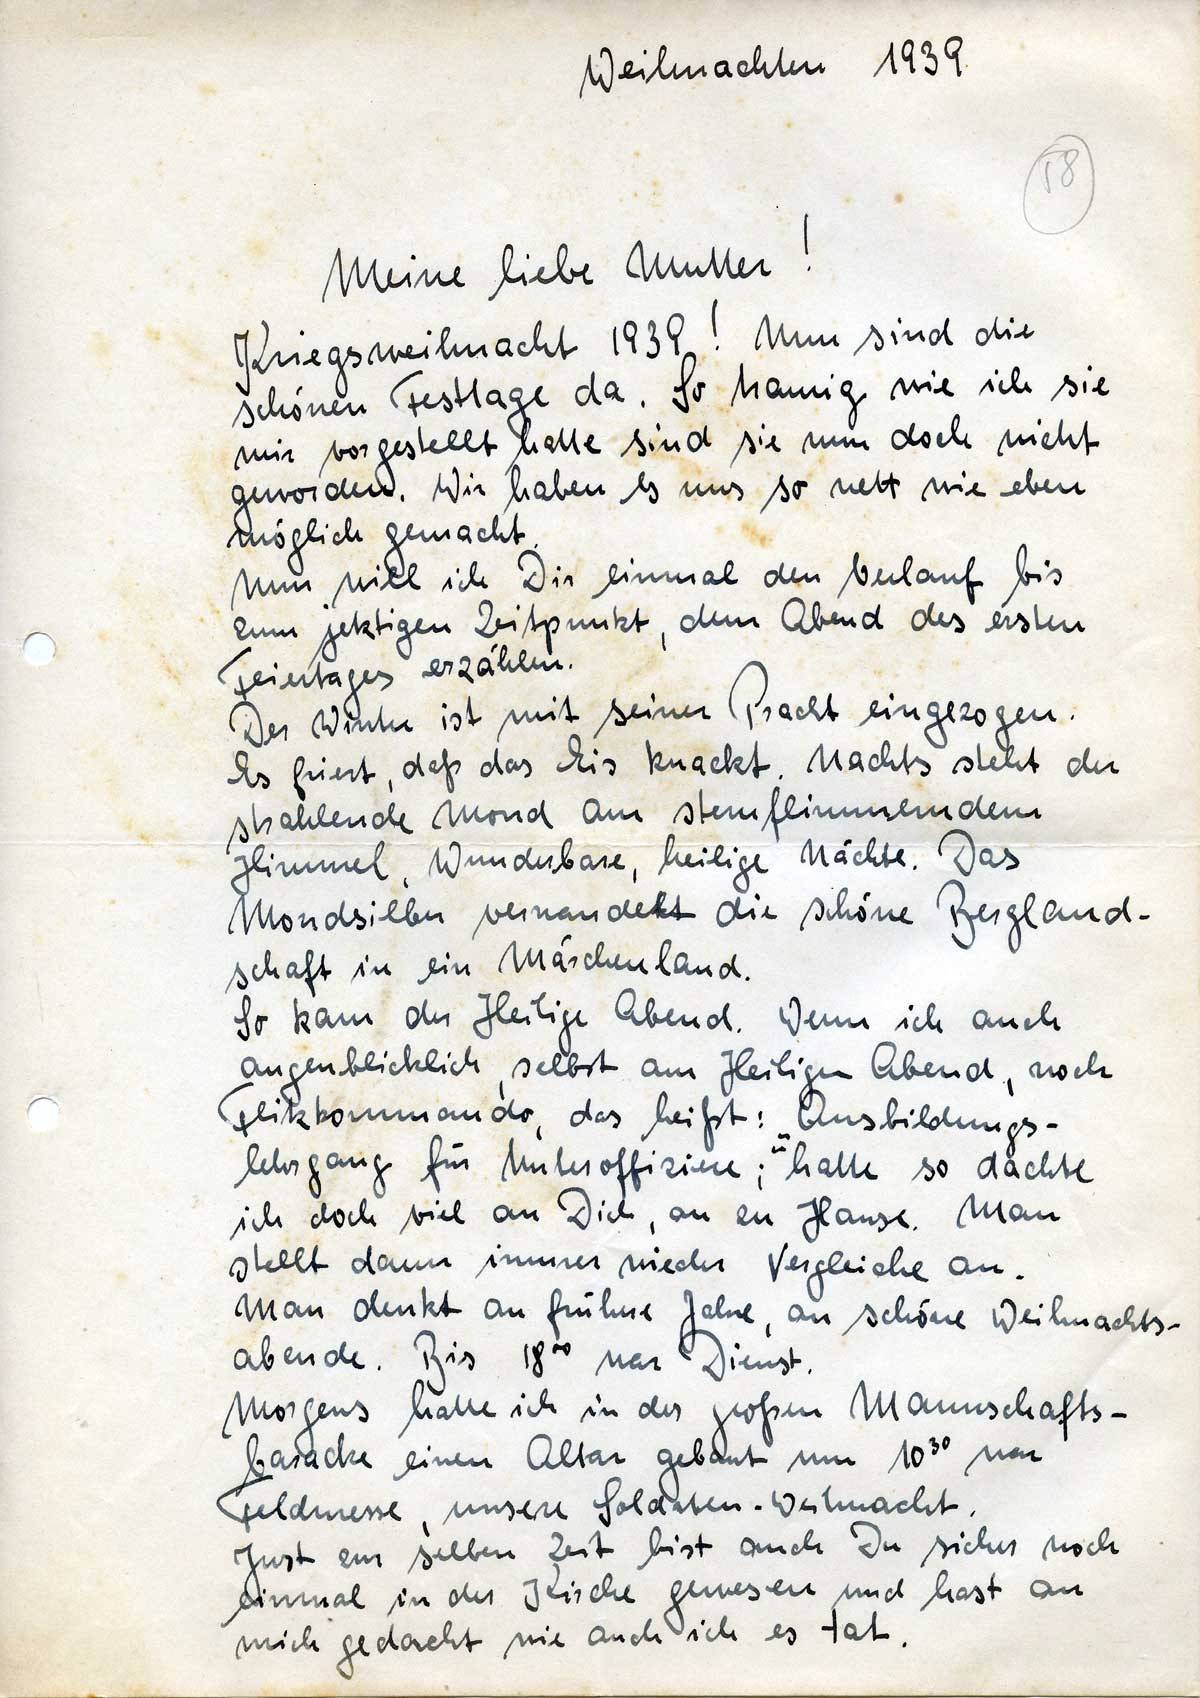 Weihnachten 1939
58
Meine liebe Mutter!
Kriegsweihnacht 1939! Nun sind die
schönen Festtage da. So traurig wie ich sie
mir vorgestellt hatte sind sie nun doch nicht
geworden. Wir haben es uns so nett wie eben
möglich gemacht.
Nun will ich Dir einmal den Verlauf bis
zum jetztigen Zeitpunkt, dem Abend des ersten
Feiertages erzählen.
Der Winter ist mit seiner Pracht eingezogen.
Es friert, daß das Eis knackt. Nachts steht der
strahlende Mond am sternflimmerndem
Himmel. Wunderbare, heilige Nächte. Das
Mondsilber verwandelt die schöne Bergland-
schaft in ein Märchenland.
So kam der Heilige Abend. Wenn ich auch
augenblicklich, selbst am Heiligen Abend, noch
Flikkommando, das heißt: "Ausbildungs-
lehrgang für Unteroffiziere;" hatte so dachte
ich doch viel an Dich, an zu Hause. Man
stellt dann immer wieder Vergleiche an.
Man denkt an frühere Jahre, an schöne Weihnachts-
abende. Bis 18⁰⁰ war Dienst.
Morgens hatte ich in der großen Mannschafts-
baracke einen Altar gebaut um 10³⁰ war
Feldmesse, unsere Soldaten-Weihnacht.
Just zur selben Zeit bist auch Du sicher noch
einmal in der Kirche gewesen und hast an
mich gedacht wie auch ich es tat.